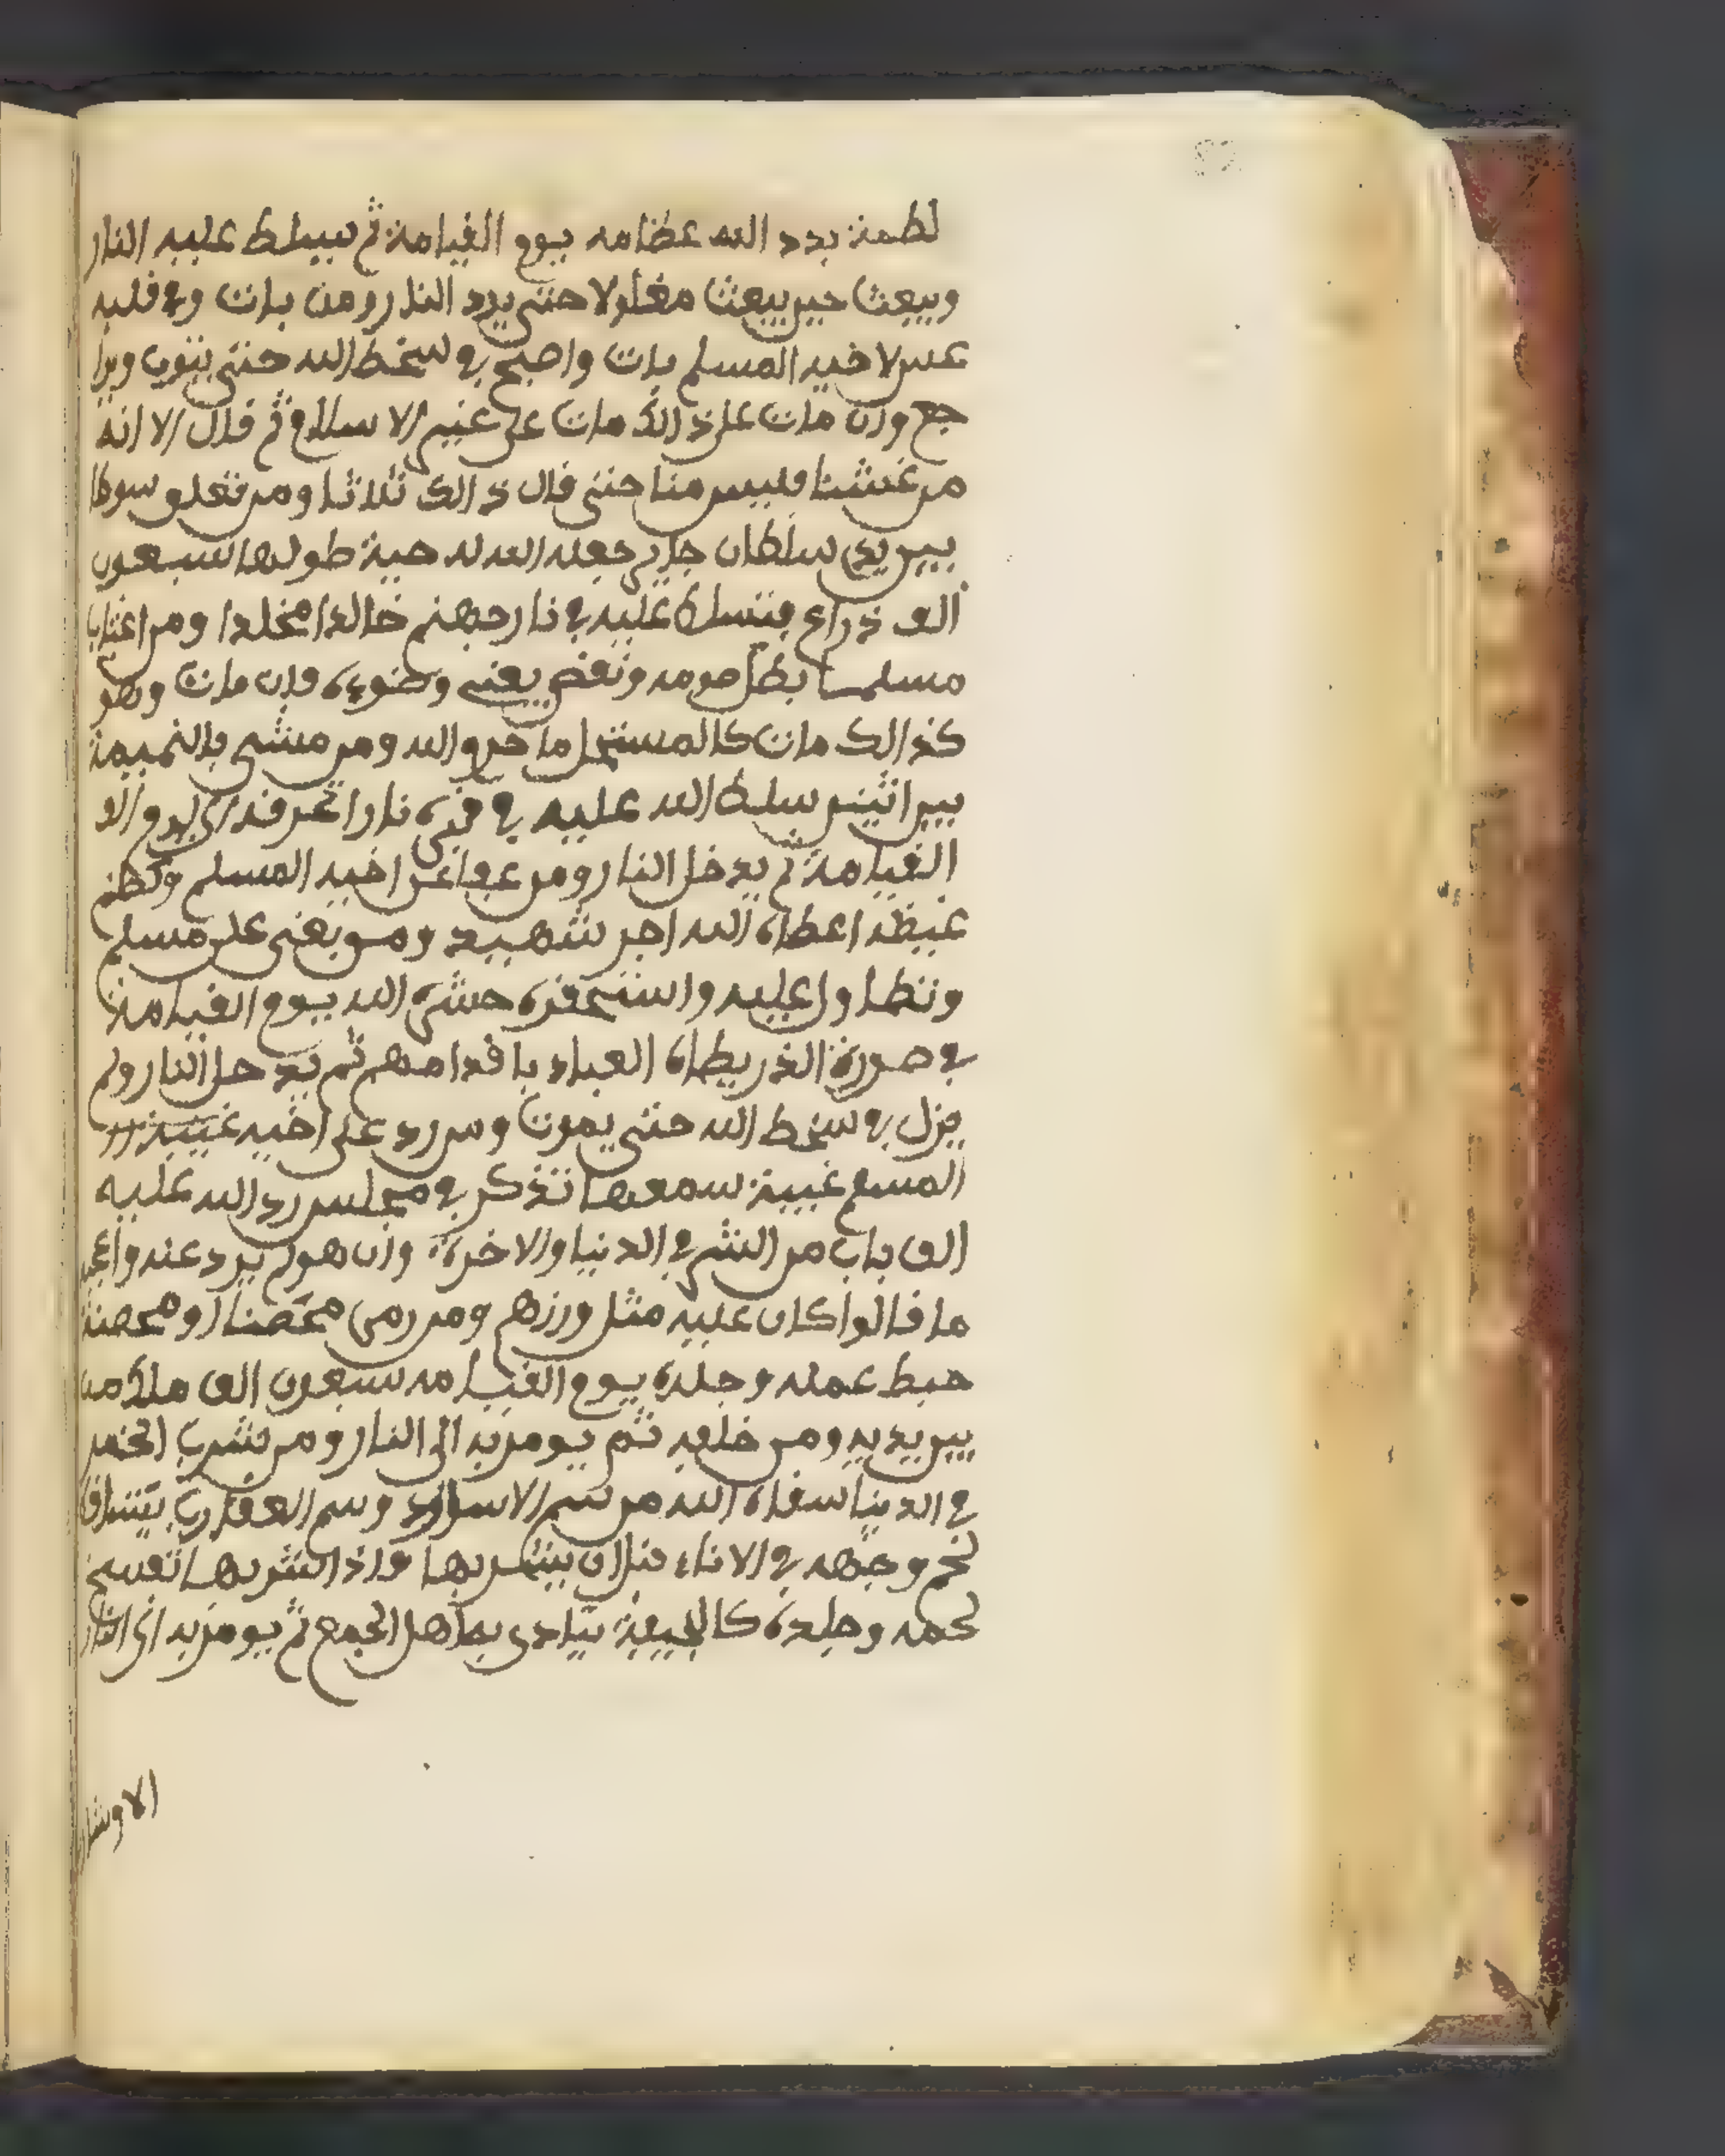 لطمة بدد الله عظامه يوم القيامة ثم سيسلط عليه النار
ويبعث حين يبعث مغلولا حتى يرد النار ومن بات وفي قلبه
غش لاخيه المسلم بات واصبح في سخط الله حتى يتوب ويرا
جع وان مات على ذالك مات على غير الاسلام ثم قال الا انه
من غشنا فليس منا حتى قال ذالك ثلاثا ومن تعلق سوطا
بين يدي سلطان جاير جعله الله له حية طولها سبعون
الف ذراع فتسلط عليه في نار جهنم خالدا مخلدا ومن اغتاب
مسلما بطل صومه ونقض يعني وضوءه فإن مات وهو
كذالك مات كالمستحل ما حرم الله ومن مشى بالنميمة
بين اثنين سلط الله عليه في قبره نارا تحرقه الى يوم
القيامة ثم يدخل النار ومن عفا عن اخيه المسلم وكظم
غيظه اعطاه الله اجر شهيد ومن بغى على مسلم
وتطاول عليه واستحقره حشره الله يوم القيامة
في صورة الذر يطاه العباد باقدامهم ثم يدخل النار ولم
يزل في سخط الله حتى يموت ومن رد على اخيه غيبة
المسلم غيبة سمعها تذكر في مجلس رد الله عليه
الف باب من الشر في الدنيا والاخرة وان هو لم يرد عنه واعجبه
ما قالوا كان عليه مثل وزرهم ومن رمى محصنا او محصنة
حبط عمله وجلده يوم القيامه سبعون الف ملك من
بين يديه ومن خلفه ثم يومر به الى النار ومن شرب الخمر
في الدنيا سقاه الله من سم الاساود وسم العقارب يتساقط
لحم وجهه في الاناء قبل ان يشربها واذا شربها تفسخ
لحمه وجلده كالجيفة يتادى به اهل الجمع ثم يومر به الى النار
الا وشا